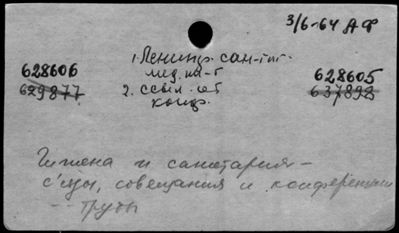 3/6-64 АФ
1. Ленингр. сан-гиг.
мед. ин-т
628606 628605
629877 2. ссыл. 637892
конф.
Гигиена и санитария —
с'езды, совещания и конференции
— труды